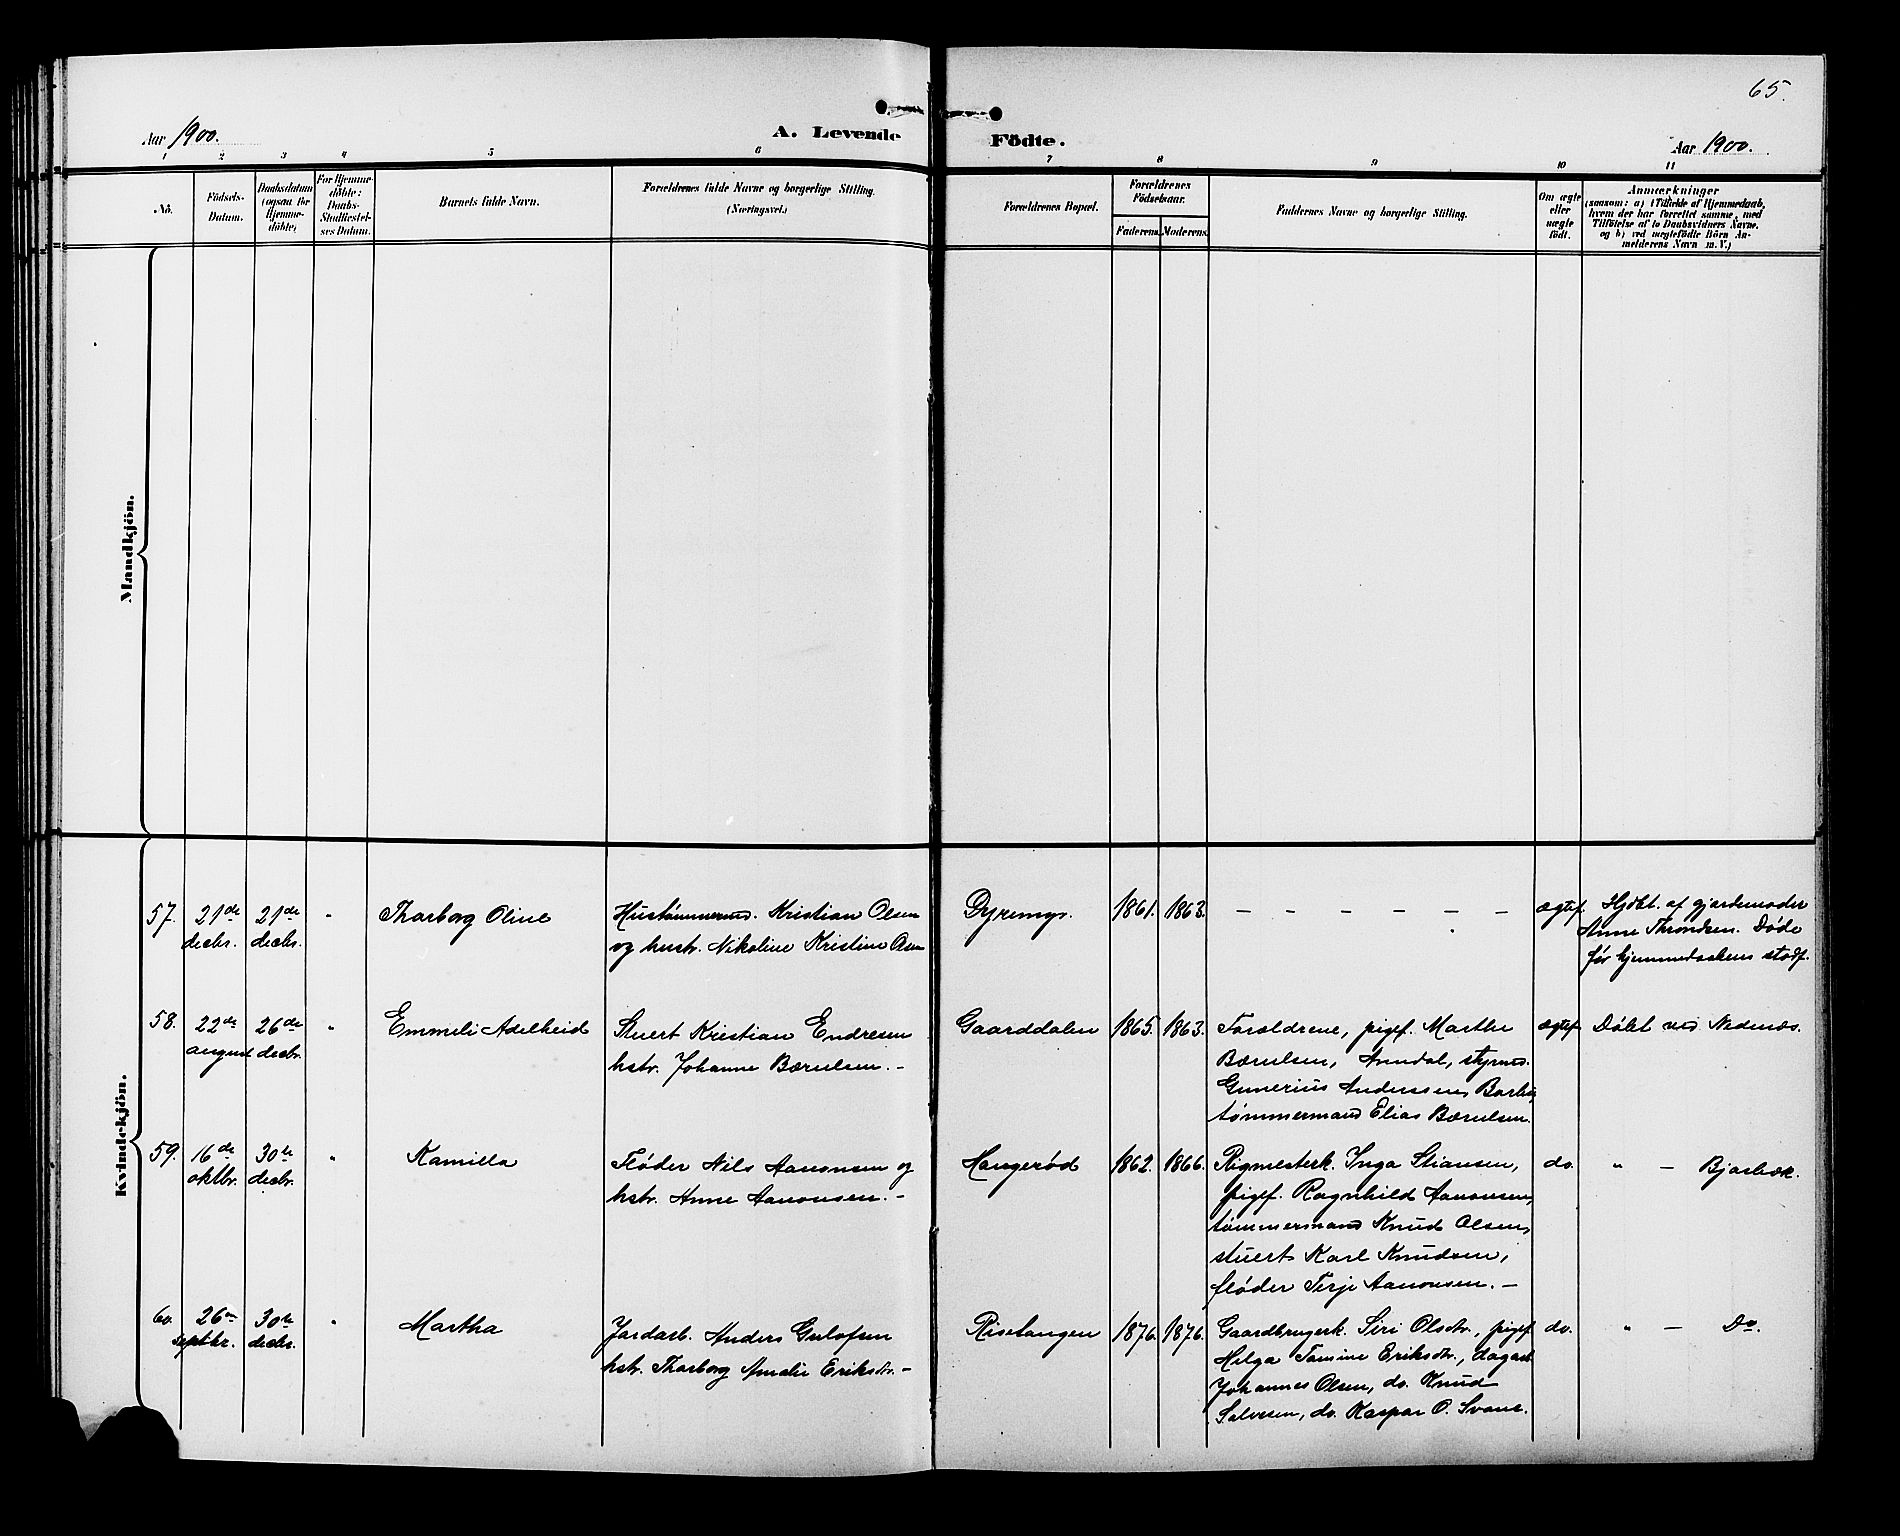 65.
Aar 1900.
A. Levende Födte.
Aar 1900.
1 2 3 4 5 6 7 8 9 10 11
No.
Födsels-
Datum.
Daabsdatum
(ogsaa for
Hjemme-
döbte)
For Hjemme-
döbte:
Daabs-
Stadfæstel-
ses Datum.
Barnets fulde Navn.
Forældrenes fulde Navne og borgerlige Stilling.
(Næringsvei.)
Forældrenes Bopæl.
Forældrenes
Födselsaar.
Faderens. Moderens.
Faddernes Navne og borgerlige Stilling.
Om ægte
eller
uægte
födt.
Anmærkninger
(saasom: a) i Tilfælde af Hjemmedaab,
hvem der har forrettet samme, med
Tilföielse af to Daabsvidners Navne.
og b) ved uægtefödte Börn An-
melderens Navn m. V.)
Mandkjön.
Kvindekjön.
57.
21de
decbr.
21de
decbr.
"
Tharborg Oline
Hustømmermd. Kristian Olsen
og hustr. Nikoline Kristine Olsen
Dyremyr.
1861. 1863.
– – – – – – –
ægtef.
Hjdbt. af gjordemoder
Anne Throndsen. Døde
før hjemmedaabens stadf.
58.
22de
august
26de
decbr.
"
Emmeli Adelheid
Stuert Kristian Endresen
hstr. Johanne Bærulsen. –
Gaarddalen
1865. 1863.
Forældrene, pigef. Marthe
Bærulsen, Arendal, styrmd.
Gunerius Anderssen, Barbu,
tømmermand Elias Bærulsen.
ægtef.
Døbt ved Nedenæs.
59.
16de
oktbr.
30te
decbr.
"
Kamilla
Fløder Nils Aanonsen og
hstr. Anne Aanonsen. –
Haugerød
1862. 1866.
Rigmesterk. Inga Stiansen,
pigef. Ragnhild Aanonsen,
tømmermand Knud Olsen,
stuert Karl Knudsen,
fløder Terje Aanonsen. –
do.
" – Bjorbæk.
60.
26de
septbr.
30te
decbr.
"
Martha
Jordarb. Anders Gulofsen
hstr. Tharborg Amalie Eriksdtr. –
Risetangen
1876. 1876.
Gaardbrugerk. Siri Olsdtr., pigef.
Helga Tomine Eriksdtr., dagarb.
Johannes Olsen, do. Knud
Salvesen, do. Kaspar O. Svane.
do.
" – Do.